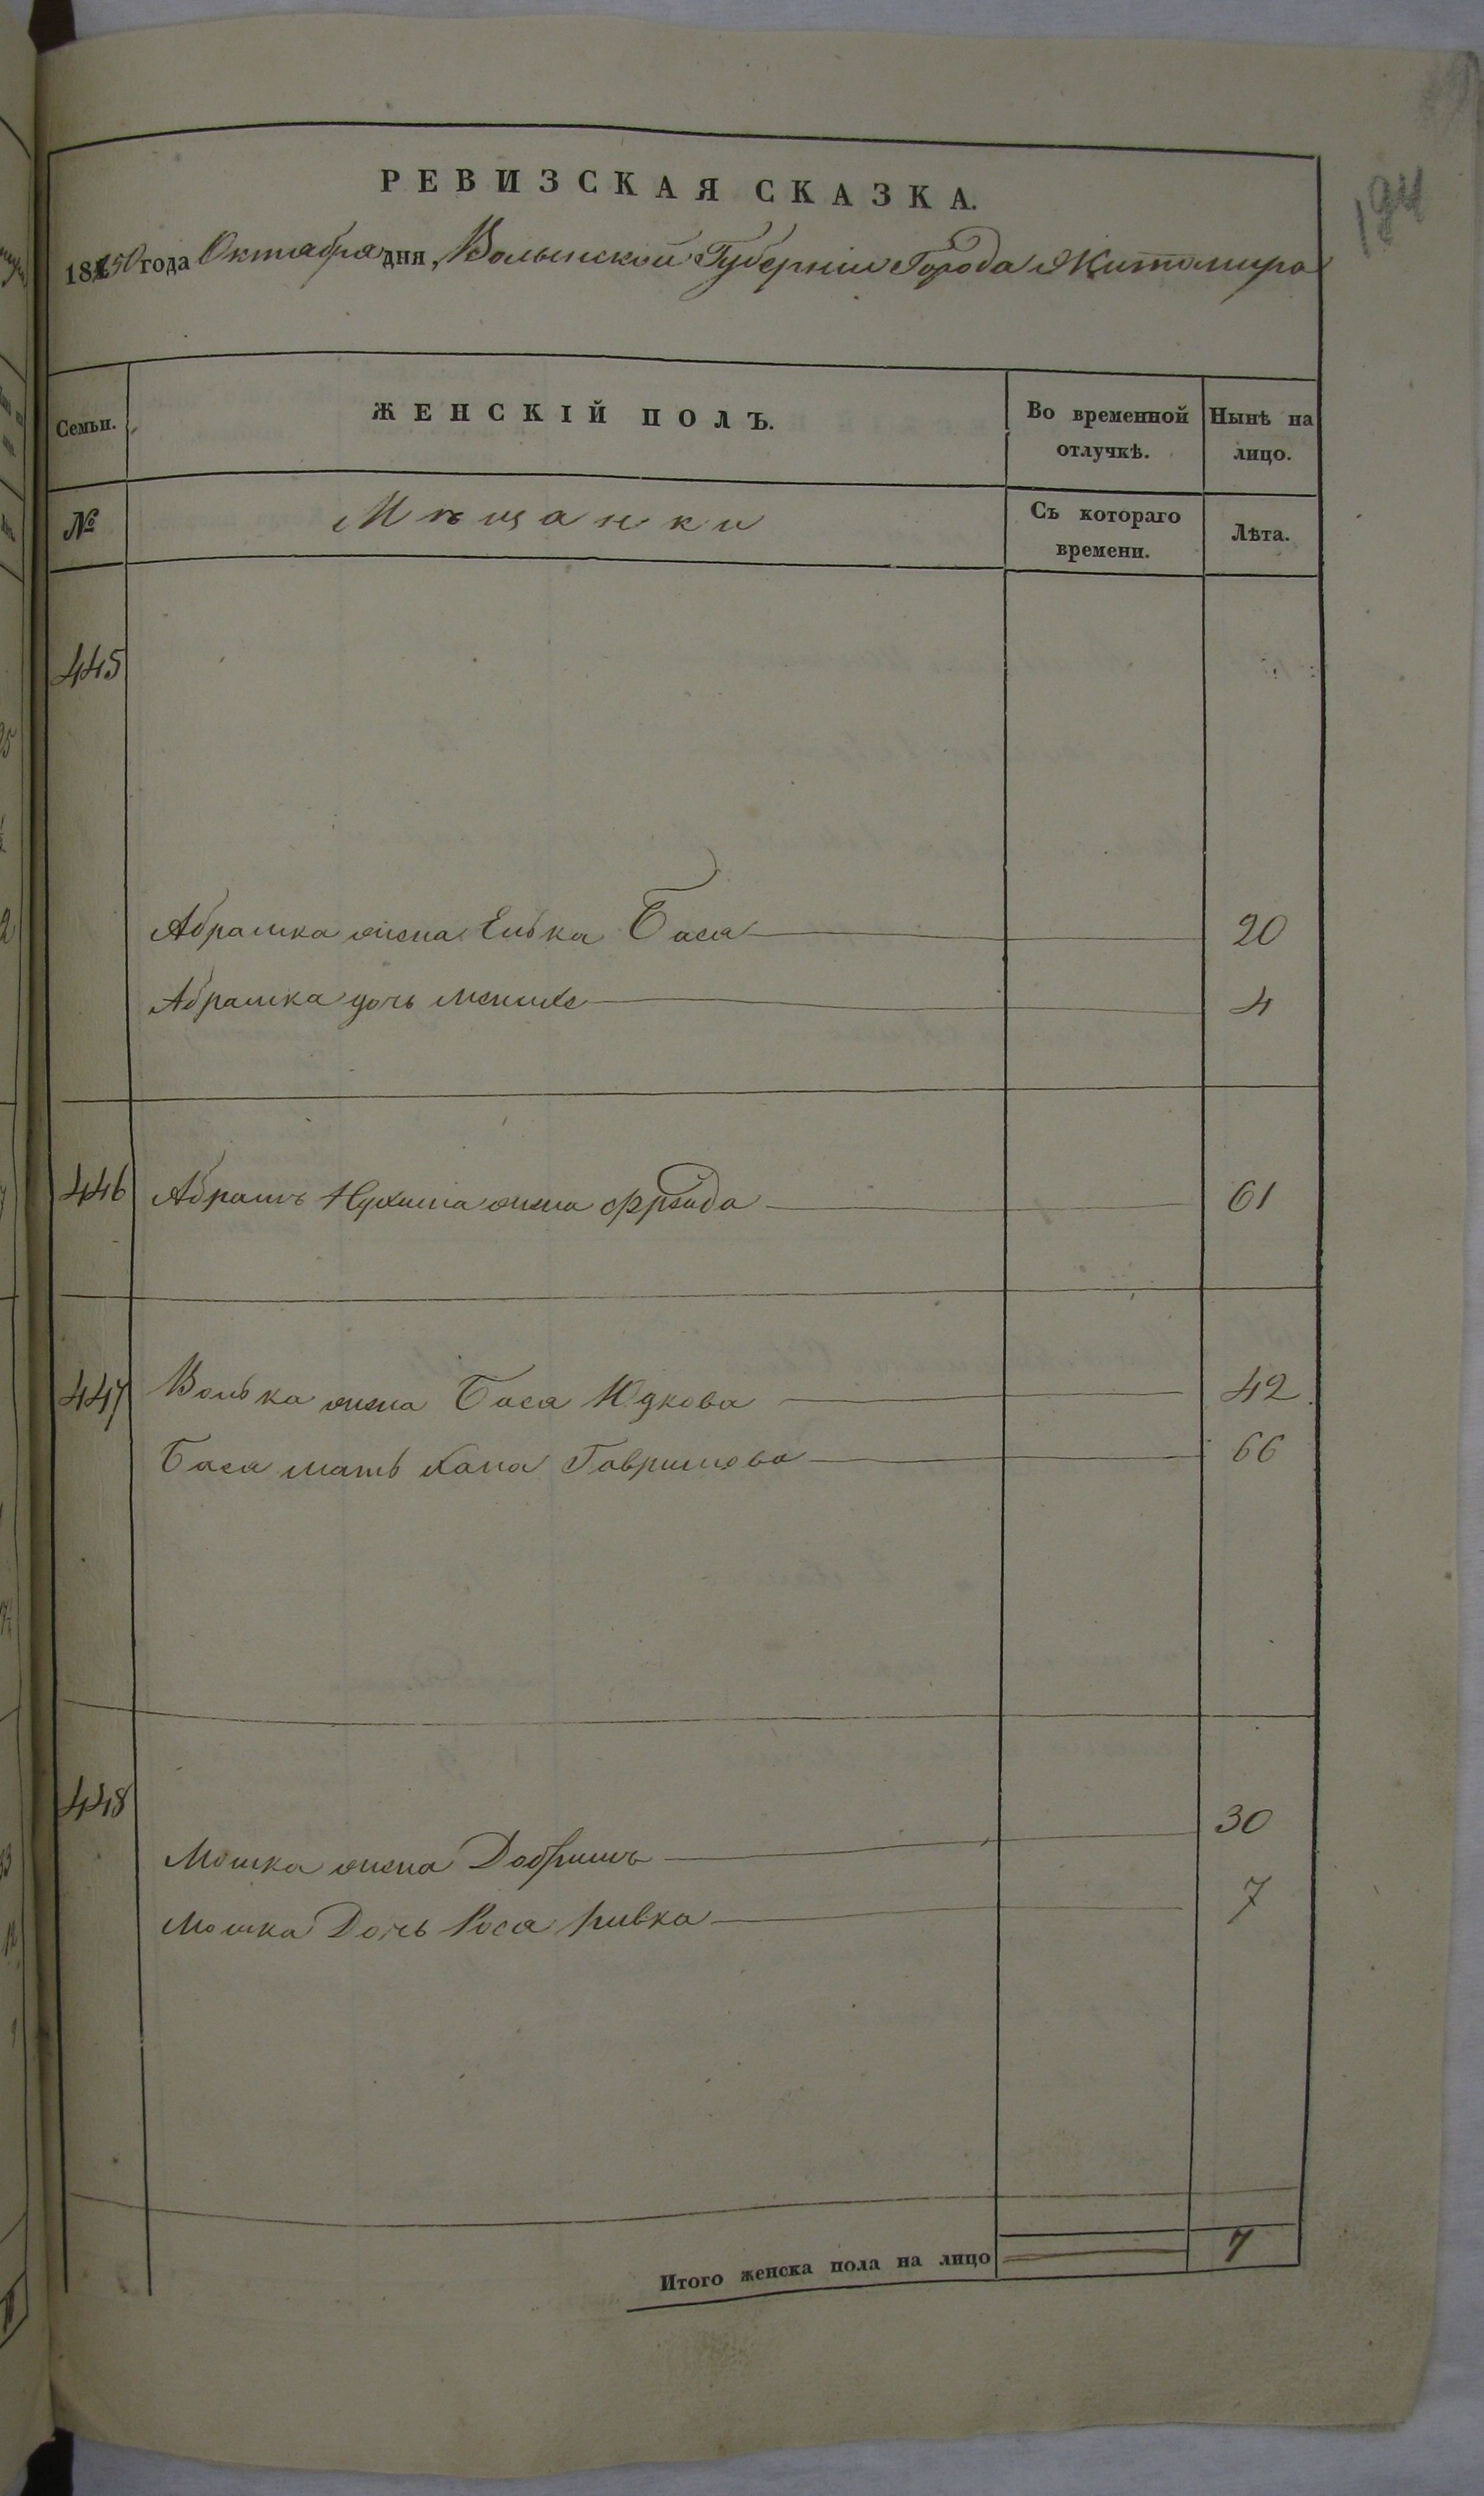 194
РЕВИЗСКАЯ СКАЗКА.
1850 года Октября дня, Волынской Губерніи Города Житомира
Семьи. ЖЕНСКІЙ ПОЛЪ. Во временной отлучкѣ. Нынѣ на лицо.
№ Мѣщанки Съ котораго времени. Лѣта.
445
Абрамка жена Енька Бася 20
Абрамка дочь 4
446 Абрамъ Нухима жена Фрейда 61
447 Волька жена Бася Юдкова 42
Бася мать Хана 66
448
Мошка жена Добришъ 30
Мошка Дочь Рося Ривка 7
Итого женска пола на лицо 7